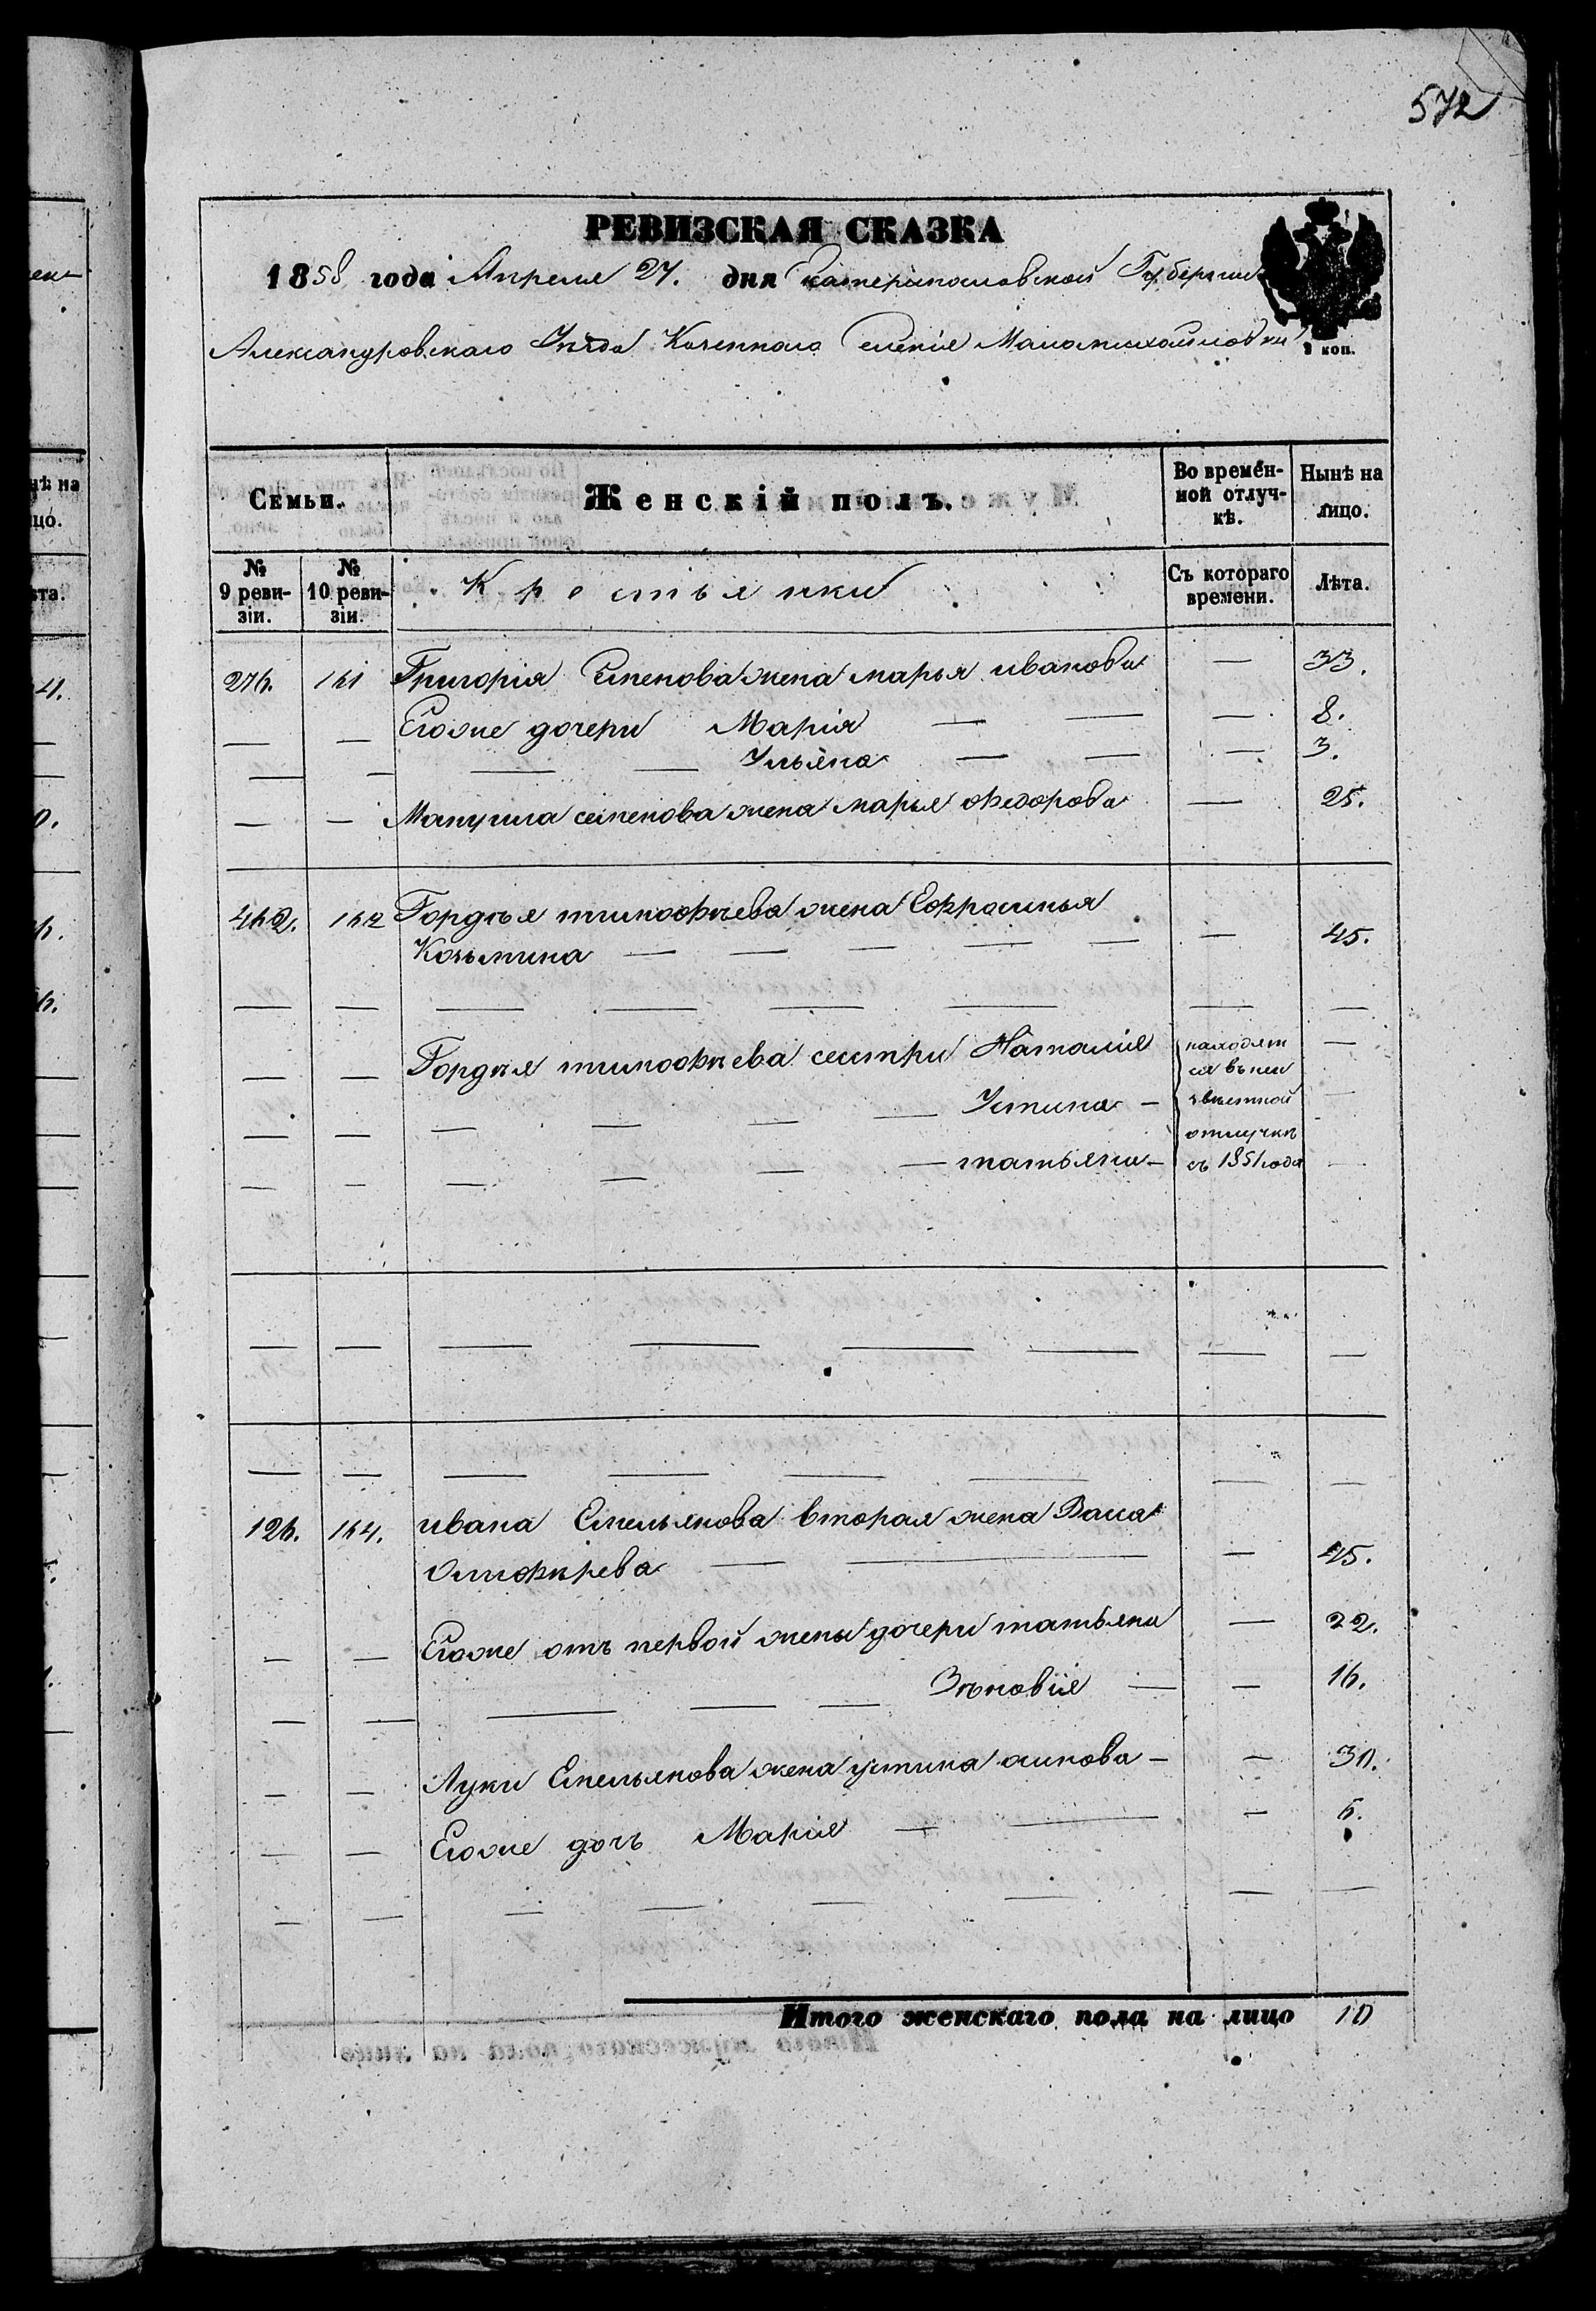 572
РЕВИЗСКАЯ СКАЗКА
1858 года Апреля 27. дня Екатеринославской Губернии
Александровскаго Уѣзда Казеннаго Селенія Маломихайловки
коп.
Семьи. Женскій полъ. Во времен-
ной отлуч-
кѣ. Нынѣ на
лицо.
№
9 реви-
зіи. №
10 реви-
зіи. Крестьянки Съ котораго
времени. Лѣта.
276. 161 Григорія Семенова жена марья иванова — 33.
— — Егоже дочери Марія — — — 8.
— — — — Ульяна — — — 3.
— — Мануила семенова жена марья Федорова — 25.
462. 162 Гордѣя тимофѣева жена Ефросинья
Козьмина — — — — — — 45.
— — — — — — — —
— — Гордѣя тимофѣева сестры Наталія находят
ся въ неи
звѣстной
отлучкѣ
съ 1851 года —
— — — — — — Устина — —
— — — — — — татьяна — —
— — — — — — — —
— — — — — — — —
126. 164. ивана Емельянова вторая жена Васса
Олифѣрева — — — 45.
— — Егоже отъ первой жены дочери татьяна — 22.
— — — — — Зѣновія — — 16.
— — Луки Емельянова жена устина осипова — — 30.
— — Егоже дочь Марія — — — 6.
— — — — — — — —
Итого женскаго пола на лицо 10